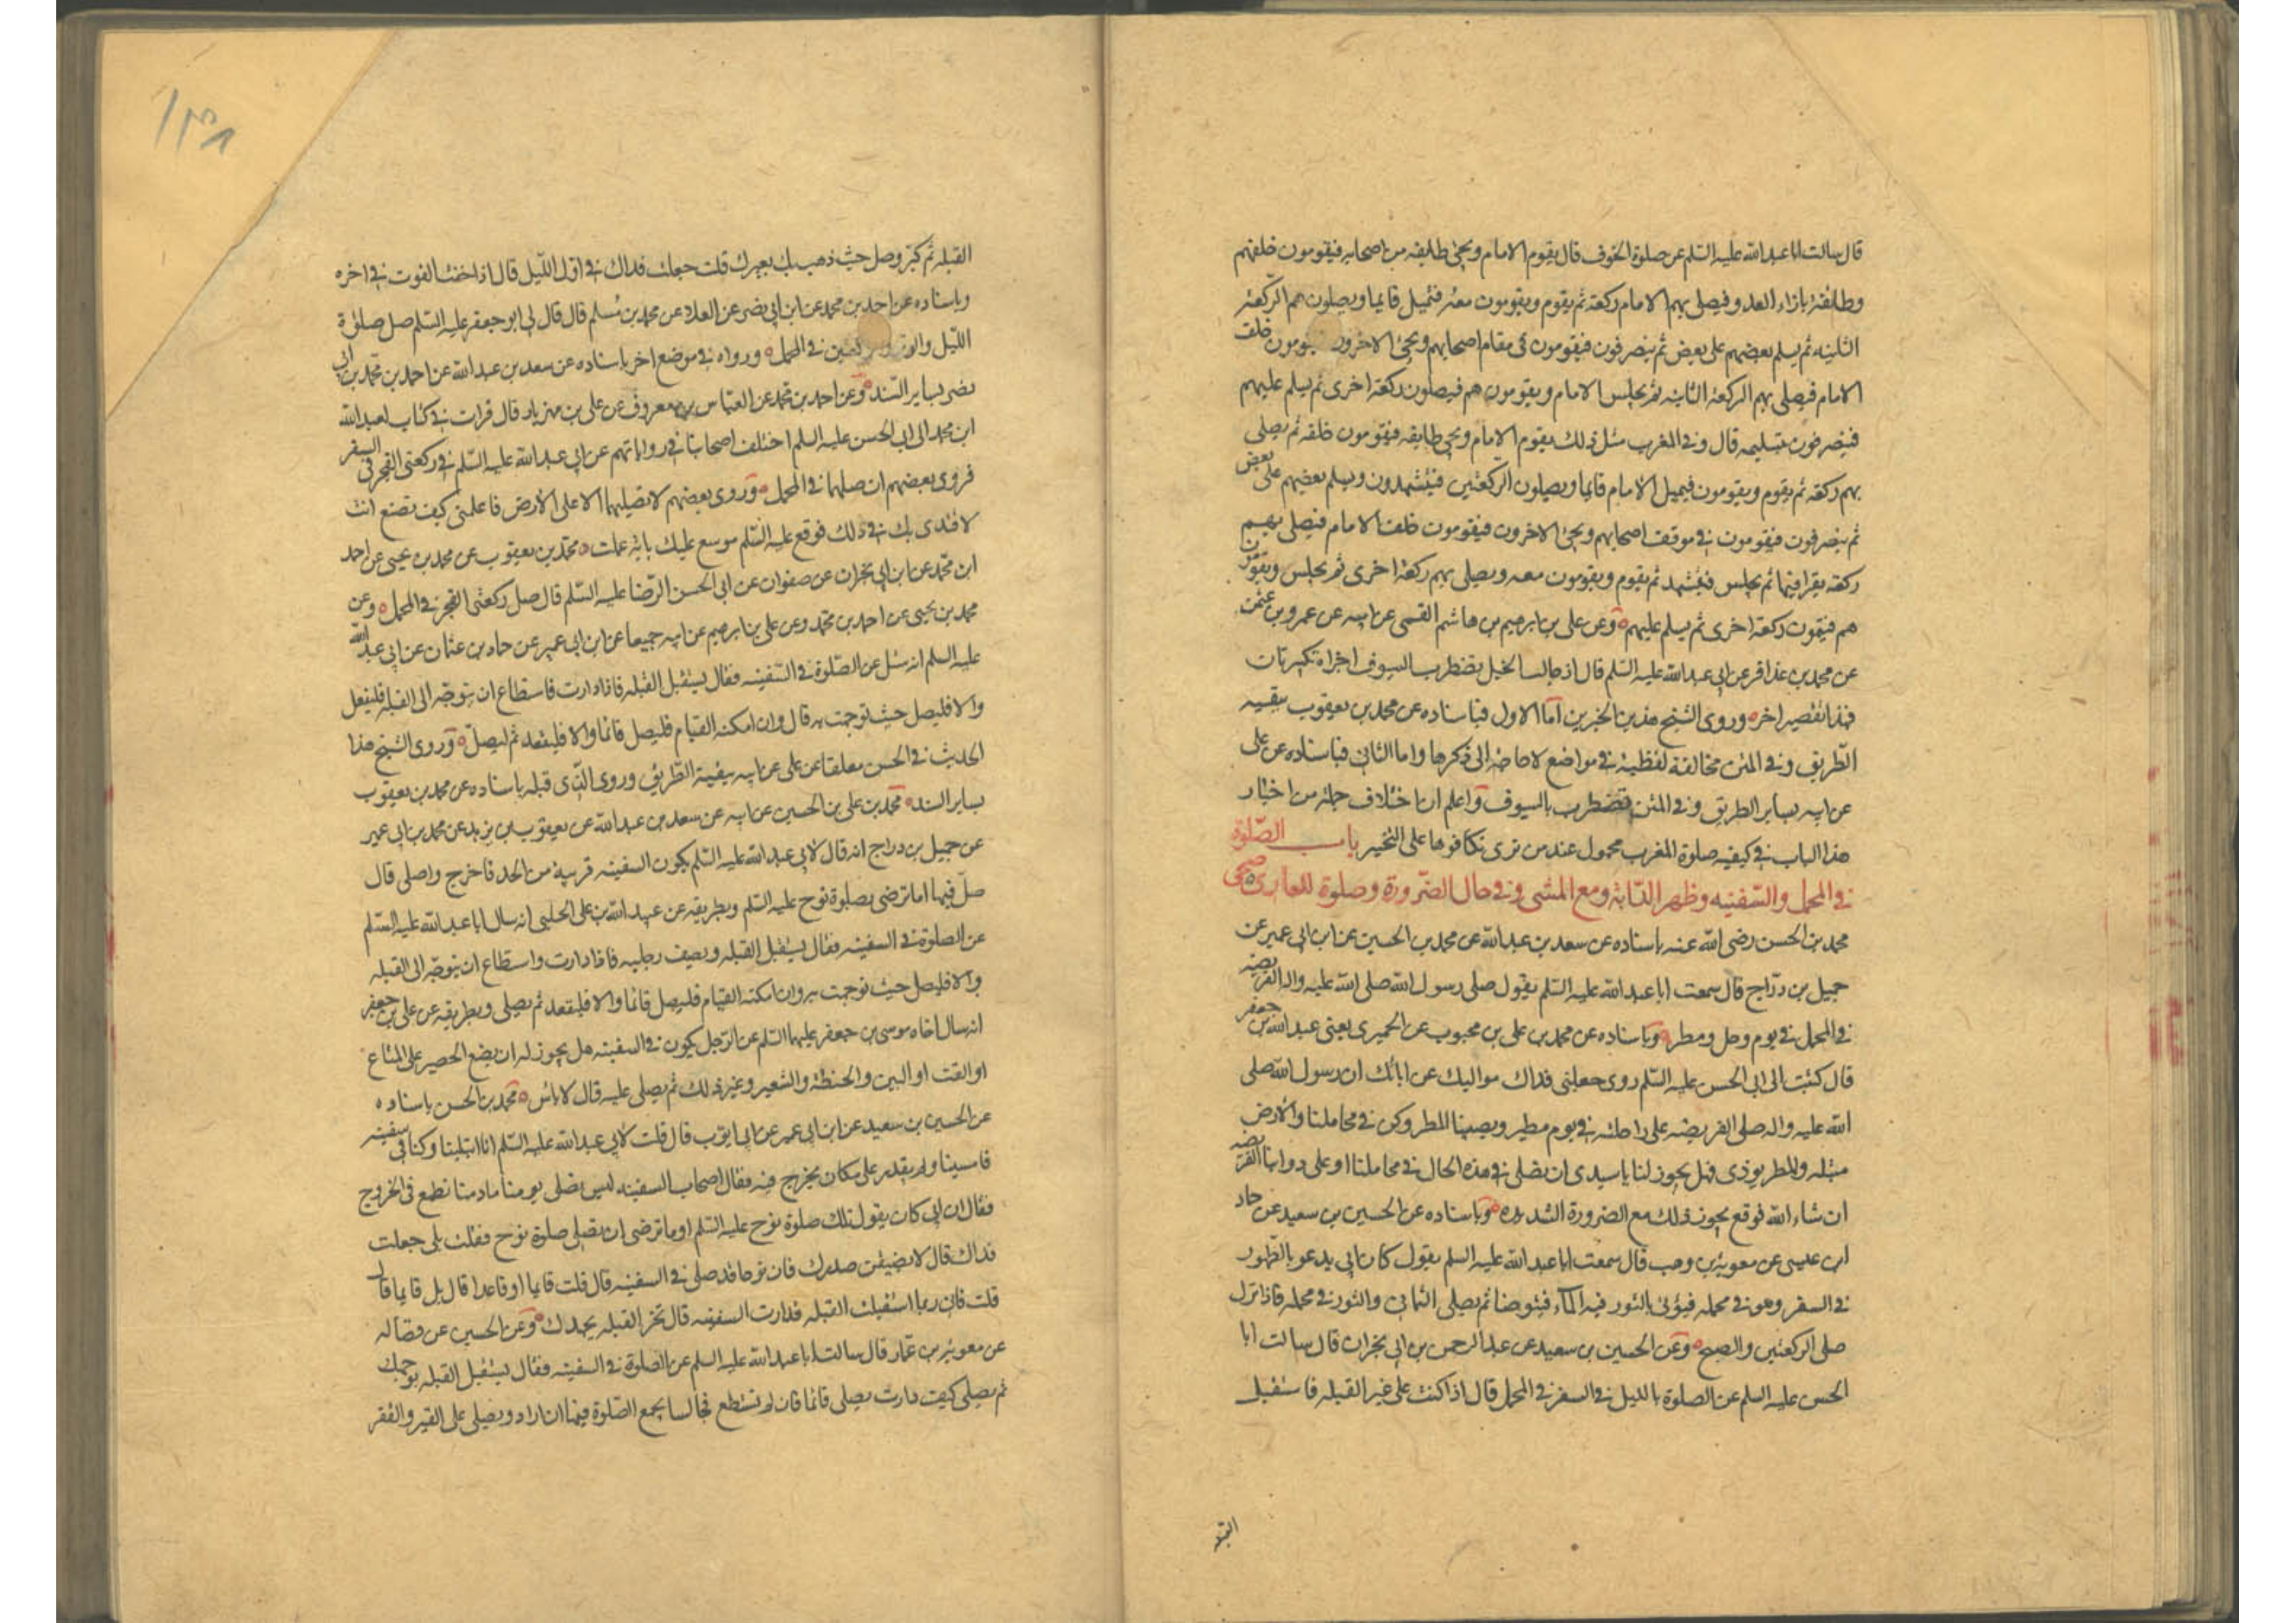 قال سالت ابا عبد الله عليه السلم عن صلوة الخوف قال يقوم الامام ويجئ طايفه من اصحابه فيقومون خلفهم
وطائفة بازاء العدو فيصلي بهم الامام ركعة ثم يقوم ويقومون معه فيمثل قايما ويصلون هم الركعة
الثانيه ثم يسلم بعضهم على بعض ثم ينصرفون فيقومون في مقام اصحابهم ويجئ الاخرون فيقومون خلف
الامام فيصلي بهم الركعة الثانيه ثم يجلس الامام ويقومون هم فيصلون ركعة اخرى ثم يسلم عليهم
فينصرفون بتسليمه قال وفي المغرب مثل ذلك يقوم الامام ويجئ طايفه فيقومون خلفه ثم يصلي
بهم ركعة ثم يقوم ويقومون فيميل الامام قايما ويصلون الركعتين فيتشهدون ويسلم بعضهم على بعض
ثم ينصرفون فيقومون في موقف اصحابهم ويجئ الاخرون فيقومون خلف الامام فيصلي بهم
ركعة يقرا فيها ثم يجلس فيتشهد ثم يقوم ويقومون معه ويصلي بهم ركعة اخرى ثم يجلس ويقومون
هم فيتمون ركعة اخرى ثم يسلم عليهم وعن علي بن ابرهيم بن هاشم القمي عن ابيه عن عمرو بن عثمن
عن محمد بن عذافر عن ابي عبد الله عليه السلم قال اذ جالت الخيل يضطرب السيوف اجزاه تكبيرتان
فهذا تقصير اخر وروى الشيخ هذين الخبرين اما الاول فباسناده عن محمد بن يعقوب ببقيه
الطريق وفي المتن مخالفة لفظية في مواضع لا حاجة الى ذكرها واما الثاني فباسناده عن علي
عن ابيه بساير الطريق وفي المتن تضطرب بالسيوف واعلم ان اختلاف جملة من اخبار
هذا الباب في كيفيه صلوة المغرب محمول عند من ترى تكافوها على التخيير باب الصلوة
في المحمل والسفينه وظهر الدابة ومع المشي وفي حال الضرورة وصلوة العاري صحي
محمد بن الحسن رضي الله عنه باسناده عن سعد بن عبد الله عن محمد بن الحسين عن ابن ابي عمير عن
جميل بن دراج قال سمعت ابا عبد الله عليه السلم يقول صلى رسول الله صلى الله عليه واله الفريضه
في المحمل في يوم وحل ومطر وباسناده عن محمد بن علي بن محبوب عن الحميري يعني عبد الله بن جعفر
قال كتبت الى ابي الحسن عليه السلم روى جعلني فداك مواليك عن ابائك ان رسول الله صلى
الله عليه واله صلى الفريضه على راحلته في يوم مطير ويصيبنا المطر وكن في محاملنا والارض
مبتله والمطر يوذي فهل يجوز لنا يا سيدي ان نصلي في هذه الحال في محاملنا او على دوابنا الفريضه
ان شاء الله فوقع يجوز ذلك مع الضرورة الشديده وباسناده عن الحسين بن سعيد عن حماد
ابن عيسى عن معوية بن وهب قال سمعت ابا عبد الله عليه السلم يقول كان ابي يدعو بالطهور
في السفر وهو في محمله فيؤتى بالتور فيه الماء فيتوضا ثم يصلي الثماني والتور في محمله فاذا نزل
صلى الركعتين والصبح وعن الحسين بن سعيد عن عبد الرحمن بن ابي نجران قال سالت ابا
الحسن عليه السلم عن الصلوة بالليل في السفر في المحمل قال اذا كنت على غير القبله فاستقبل
القبله
١٣٨
القبله ثم كبر وصل حيث ذهب بك بعيرك قلت جعلت فداك في اول الليل قال اذا خفت الفوت في اخره
وباسناده عن احمد بن محمد عن ابن ابي نصر عن العلاء عن محمد بن مسلم قال قال لي ابو جعفر عليه السلم صل صلوة
الليل والوتر في المحمل ورواه في موضع اخر باسناده عن سعد بن عبد الله عن احمد بن محمد بن ابي
نصر بساير السند وعن احمد بن محمد عن العباس بن معروف عن علي بن مهزيار قال قرات في كتاب لعبد الله
ابن محمد الى ابي الحسن عليه السلم اختلف اصحابنا في رواياتهم عن ابي عبد الله عليه السلم في ركعتي الفجر في السفر
فروى بعضهم ان صلهما في المحمل وروى بعضهم لا تصليهما الا على الارض فاعلمني كيف تصنع انت
لاقتدي بك في ذلك فوقع عليه السلم موسع عليك باية عملت محمد بن يعقوب عن محمد بن عيسى عن احمد
ابن محمد عن ابن ابي نجران عن صفوان عن ابي الحسن الرضا عليه السلم قال صل ركعتي الفجر في المحمل وعن
محمد بن يحيى عن احمد بن محمد وعن علي بن ابرهيم عن ابيه جميعا عن ابن ابي عمير عن حماد بن عثمان عن ابي عبد الله
عليه السلم انه سئل عن الصلوة في السفينه فقال يستقبل القبله فاذا دارت فاستطاع ان يتوجه الى القبله فليفعل
والا فليصل حيث توجهت به قال وان امكنه القيام فليصل قائما والا فليقعد ثم ليصل وروى الشيخ هذا
الحديث في الحسن معلقا عن علي عن ابيه ببقية الطريق وروى الذي قبله باسناده عن محمد بن يعقوب
بساير السند محمد بن علي بن الحسين عن ابيه عن سعد بن عبد الله عن يعقوب بن يزيد عن محمد بن ابي عمير
عن جميل بن دراج انه قال لابي عبد الله عليه السلم يكون السفينه قريبة من الجد فاخرج واصلي قال
صل فيها اما ترضى بصلوة نوح عليه السلم وبطريقه عن عبيد الله بن علي الحلبي انه سال ابا عبد الله عليه السلم
عن الصلوة في السفينه فقال يستقبل القبله ويصف رجليه فاذا دارت واستطاع ان يتوجه الى القبله
والا فليصل حيث توجهت به وان امكنه القيام فليصل قائما والا فليقعد ثم يصلي وبطريقه عن علي بن جعفر
انه سال اخاه موسى بن جعفر عليهما السلم عن الرجل يكون في السفينه هل يجوز له ان يضع الحصير على المتاع
او القت او التبن والحنطة والشعير وغير ذلك ثم يصلي عليه قال لا باس محمد بن الحسن باسناده
عن الحسين بن سعيد عن ابن ابي عمير عن ابي ايوب قال قلت لابي عبد الله عليه السلم انا ابتلينا وكنا في سفينه
فامسينا ولم يقدر على مكان يخرج فيه فقال اصحاب السفينه ليس نصلي يومنا ما دمنا نطمع في الخروج
فقال ان ابي كان يقول تلك صلوة نوح عليه السلم اوما ترضى ان تصلي صلوة نوح فقلت بلى جعلت
فداك قال لا يضيقن صدرك فان نوحا قد صلى في السفينه قال قلت قايما او قاعدا قال بل قايما قال
قلت فان ربما استقبلت القبله فدارت السفينه قال تحر القبله بجهدك وعن الحسين عن فضاله
عن معوية بن عمار قال سالت ابا عبد الله عليه السلم عن الصلوة في السفينه فقال يستقبل القبله بوجهك
ثم يصلي كيف دارت يصلي قائما فان لم تستطع فجالسا يجمع الصلوة فيها ان اراد ويصلي على القير والقفر